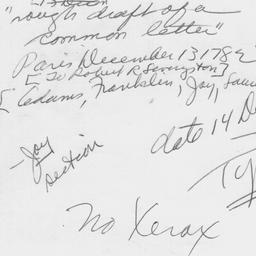 "rough draft of a
common letter"
Paris December 13 1782
[To Robert R Livingston]
[Adams, Franklin, Jay, Laur
date 14 De
-Jay
section
Ty
No Xerox